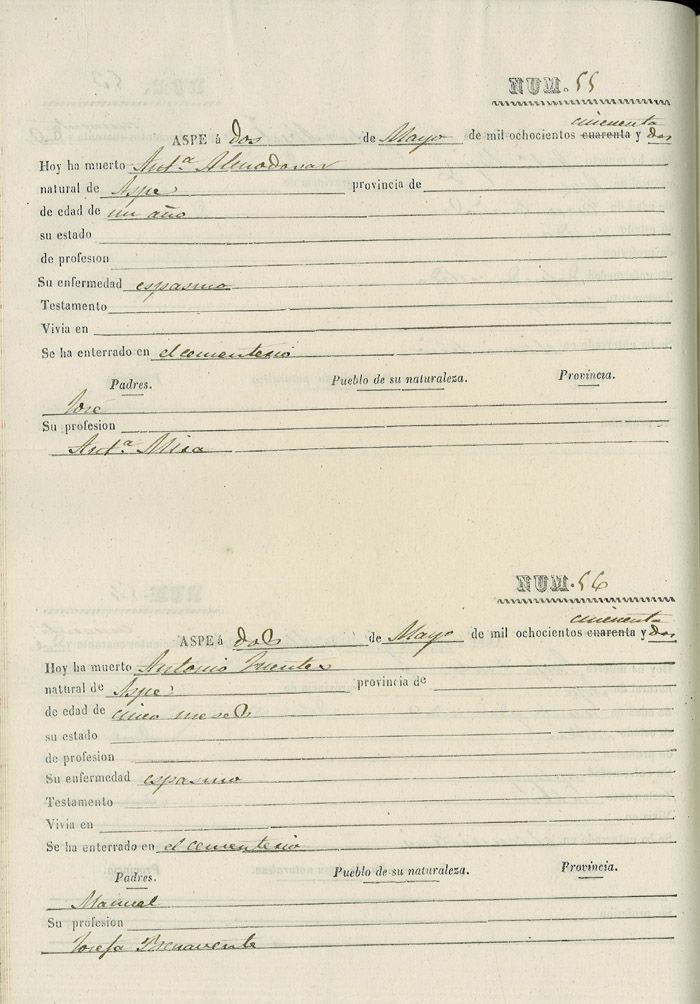 NUM. 55
cincuenta
ASPE á dos de Mayo de mil ochocientos cuarenta y dos
Hoy ha muerto Ant.ª Almodovar
natural de Aspe provincia de
de edad de un año
su estado
de profesion
Su enfermedad espasmo
Testamento
Vivia en
Se ha enterrado en el cementerio
Padres. Pueblo de su naturaleza. Provincia.
José
Su profesion
Ant.ª Mira
NUM. 56
cincuenta
ASPE á dos de Mayo de mil ochocientos cuarenta y dos
Hoy ha muerto Antonio Fuentes
natural de Aspe provincia de
de edad de cinco meses
su estado
de profesion
Su enfermedad espasmo
Testamento
Vivia en
Se ha enterrado en el cementerio
Padres. Pueblo de su naturaleza. Provincia.
Manuel
Su profesion
Josefa Benavente